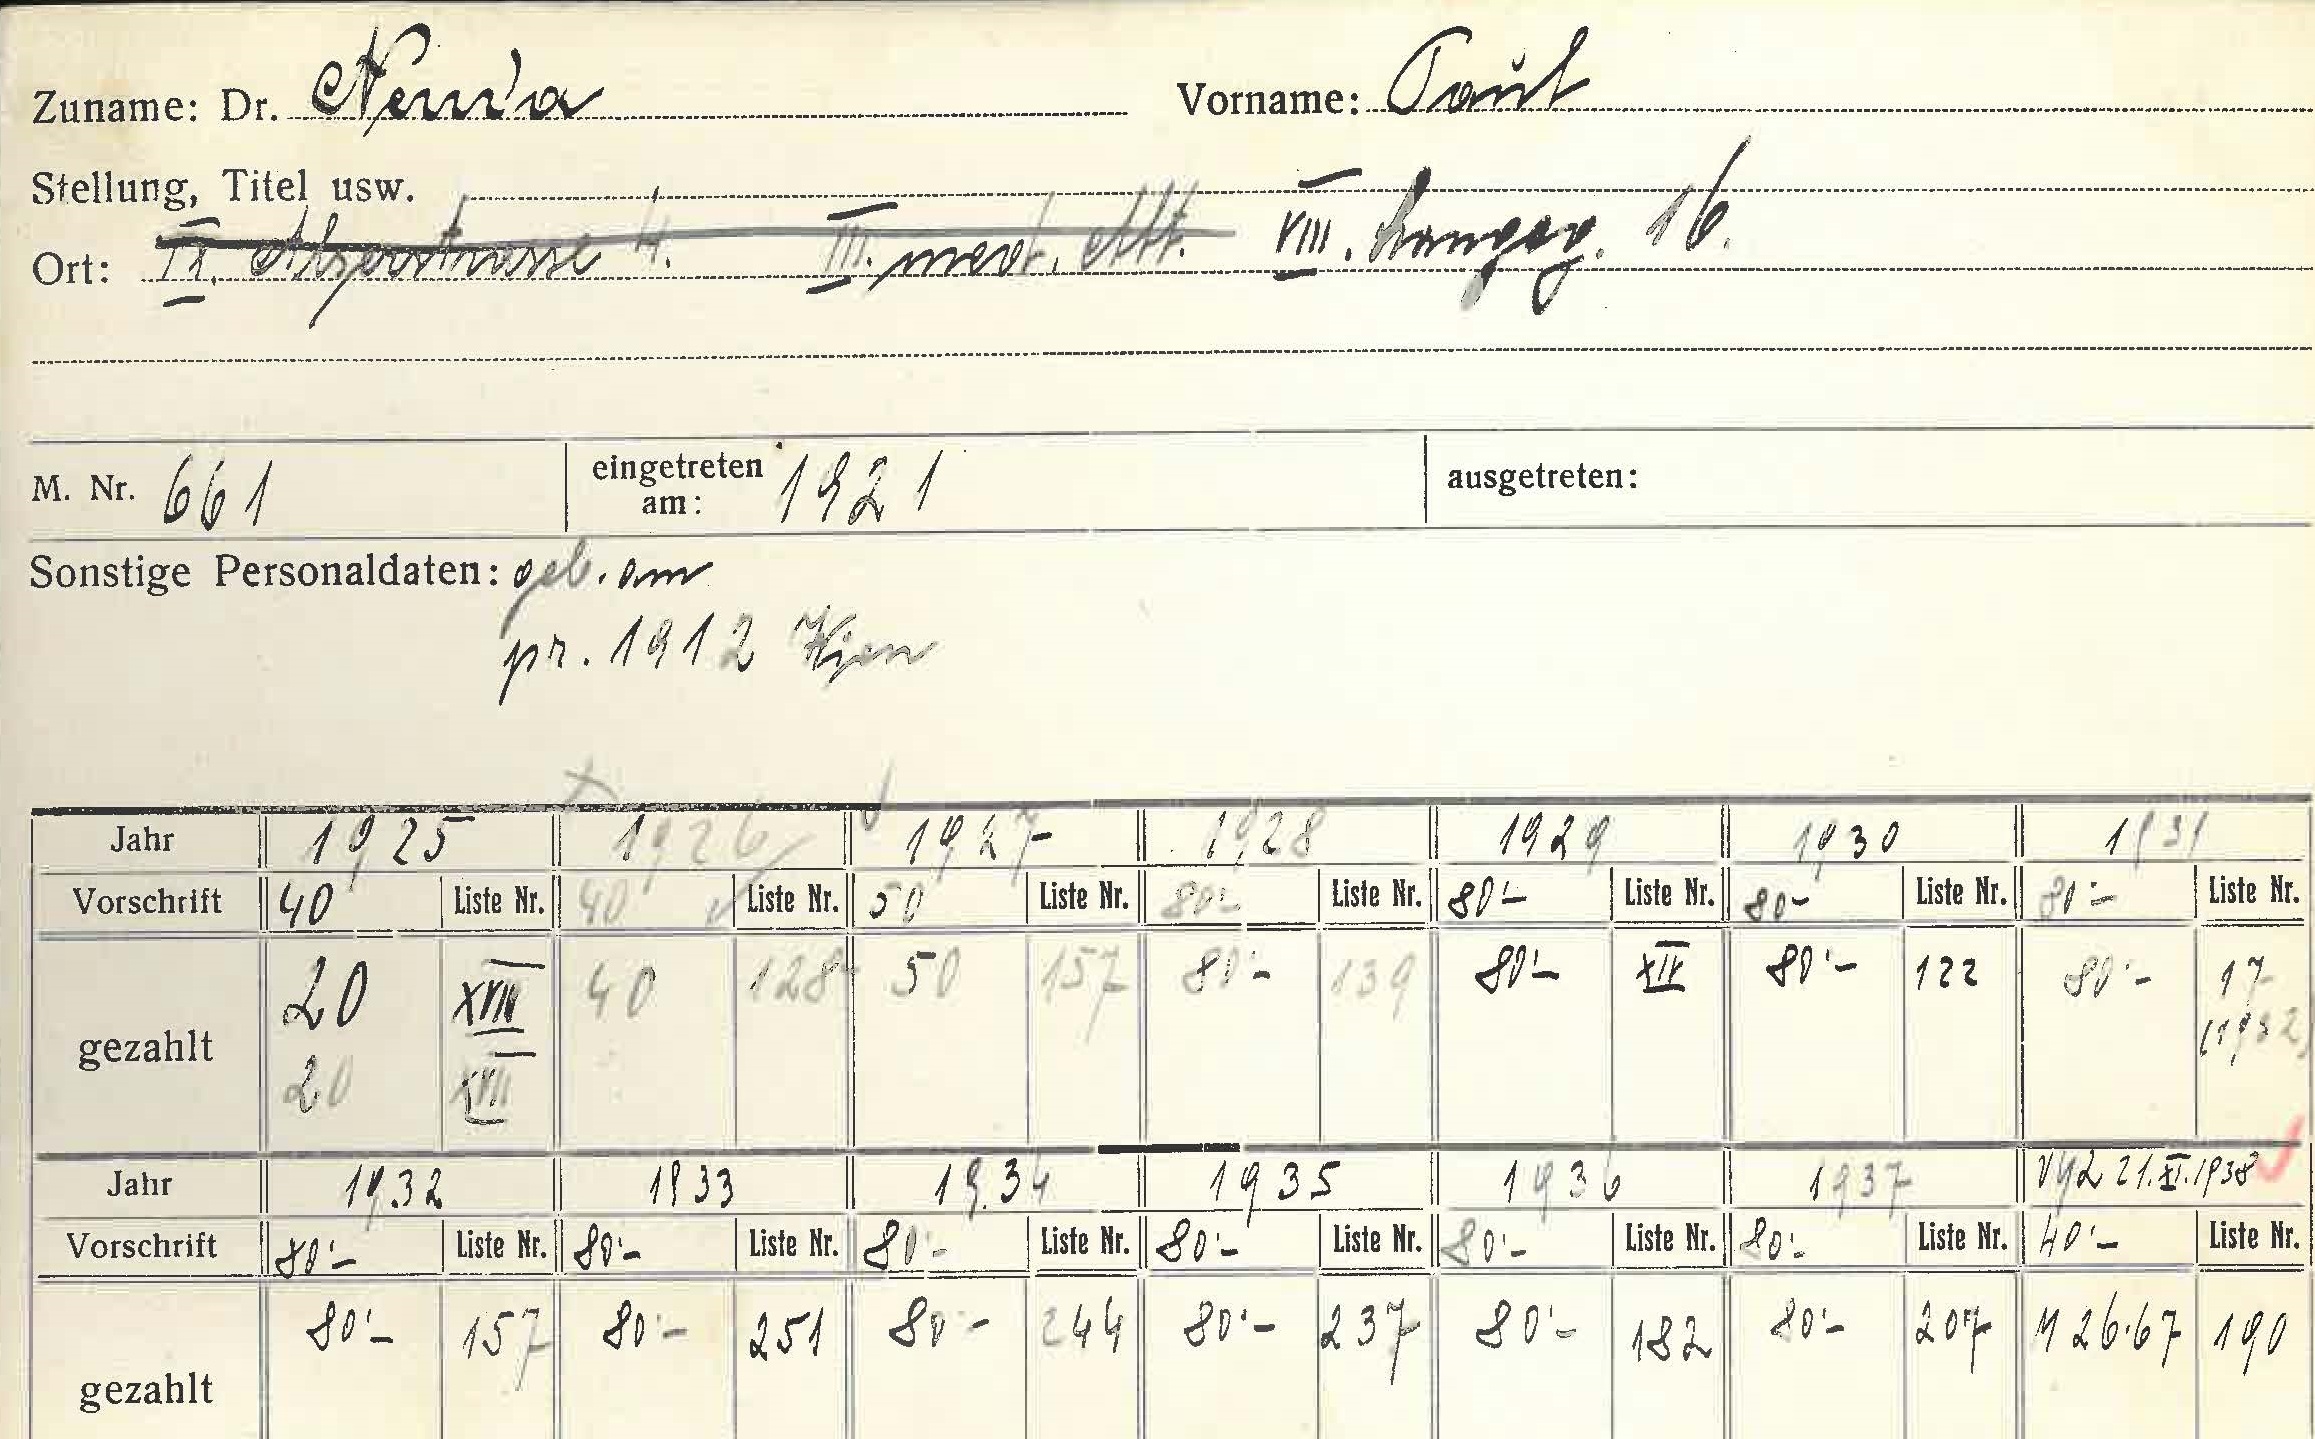 Zuname: Dr. Neuda Vorname: Paul
Stellung, Titel usw.
Ort: IX. Alserstrasse 4. III. med. Abt. VIII. Langeg. 16.
M. Nr. 661 eingetreten am: 1921 ausgetreten:
Sonstige Personaldaten: geb. am
pr. 1912 Wien
Jahr 1925 1926 1927 1928 1929 1930 1931
Vorschrift 40 Liste Nr. 40 Liste Nr. 50 Liste Nr. 80.- Liste Nr. 80.- Liste Nr. 80.- Liste Nr. 80.- Liste Nr.
gezahlt 20 XVIII 40 128 50 157 80.- 139 80.- XIV 80.- 122 80.- 17
(1932)
20 XVII
Jahr 1932 1933 1934 1935 1936 1937 21.XI.1938
Vorschrift 80.- Liste Nr. 80.- Liste Nr. 80.- Liste Nr. 80.- Liste Nr. 80.- Liste Nr. 80.- Liste Nr. 40.- Liste Nr.
gezahlt 80.- 157 80.- 251 80.- 244 80.- 237 80.- 182 80.- 207 M 26.67 190